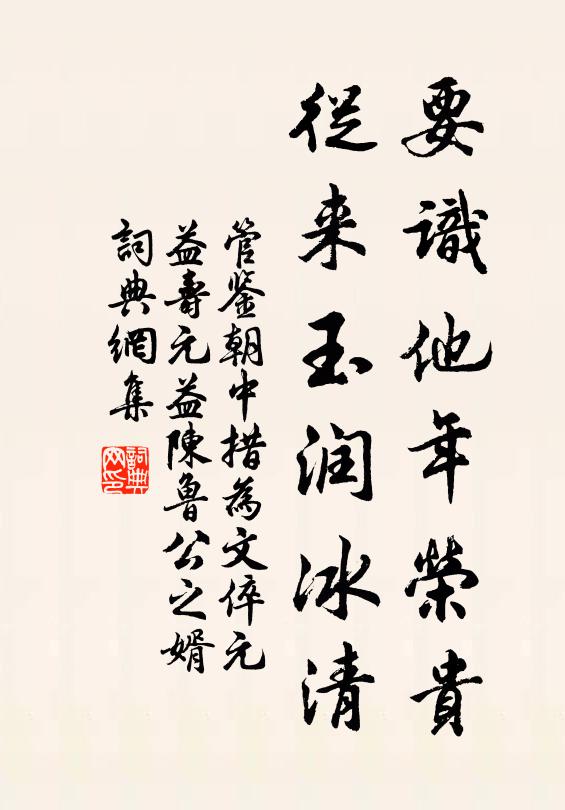 要識他年榮貴
從来玉润冰清
管鉴朝中措為文倅元
益壽元益陳魯公之婿
詞典網集
詞典
网印